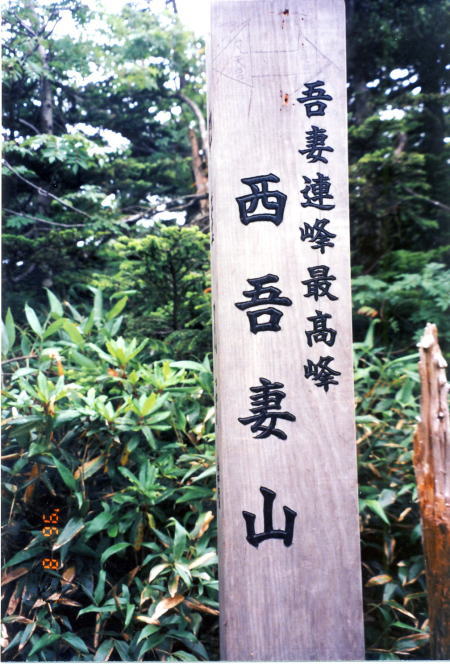 吾妻連峰最高峰
西吾妻山